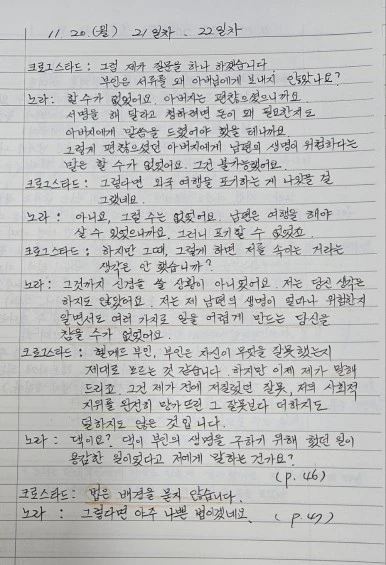 11. 20. (월) 21일차. 22일차
크로그스타드 : 그럼 제가 질문을 하나 하겠습니다
부인은 서류를 왜 아버님에게 보내지 않았나요?
노라 : 할 수가 없었어요. 아버지는 편찮으셨으니까요
서명을 해 달라고 청하려면 돈이 왜 필요한지도
아버지에게 말씀을 드렸어야 했을 테니까요
그렇게 편찮으셨던 아버지에게 남편의 생명이 위험하다는
말은 할 수가 없었어요. 그건 불가능했어요.
크로그스타드 : 그렇다면 외국 여행을 포기하는 게 나았을 걸
그랬네요.
노라 : 아니요, 그럴 수는 없었어요. 남편은 여행을 해야
살 수 있었으니까요. 그러니 포기할 수 없었죠.
크로그스타드 : 하지만 그때, 그렇게 하면 저를 속이는 거라는
생각은 안 했습니까?
노라 : 그것까지 신경을 쓸 상황이 아니었어요. 저는 당신 생각은
하지도 않았어요. 저는 제 남편의 생명이 얼마나 위험한지
알면서도 여러 가지로 일을 어렵게 만드는 당신을
참을 수가 없었어요.
크로그스타드 : 헬메르 부인, 부인은 자신이 무엇을 잘못했는지
제대로 모르는 것 같습니다. 하지만 이제 제가 말해
드리죠. 그건 제가 전에 저질렀던 잘못, 저의 사회적
지위를 완전히 망가뜨린 그 잘못보다 더하지도
덜하지도 않은 것입니다.
노라 : 댁이요? 댁이 부인의 생명을 구하기 위해 했던 일이
용감한 일이었다고 저에게 말하는 건가요?
(p. 46)
크로그스타드 : 법은 배경을 묻지 않습니다.
노라 : 그렇다면 아주 나쁜 법이겠네요. (p. 47)